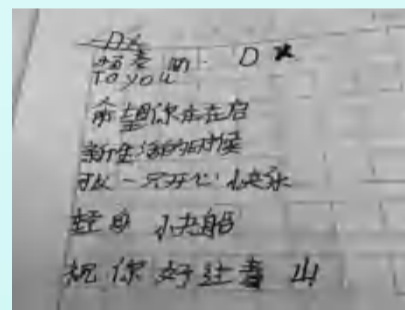 DX
亲爱的 DX
To you
希望你未在启
新生活的时候
可以一只开心 快乐
轻舟 快船
祝你好过春山